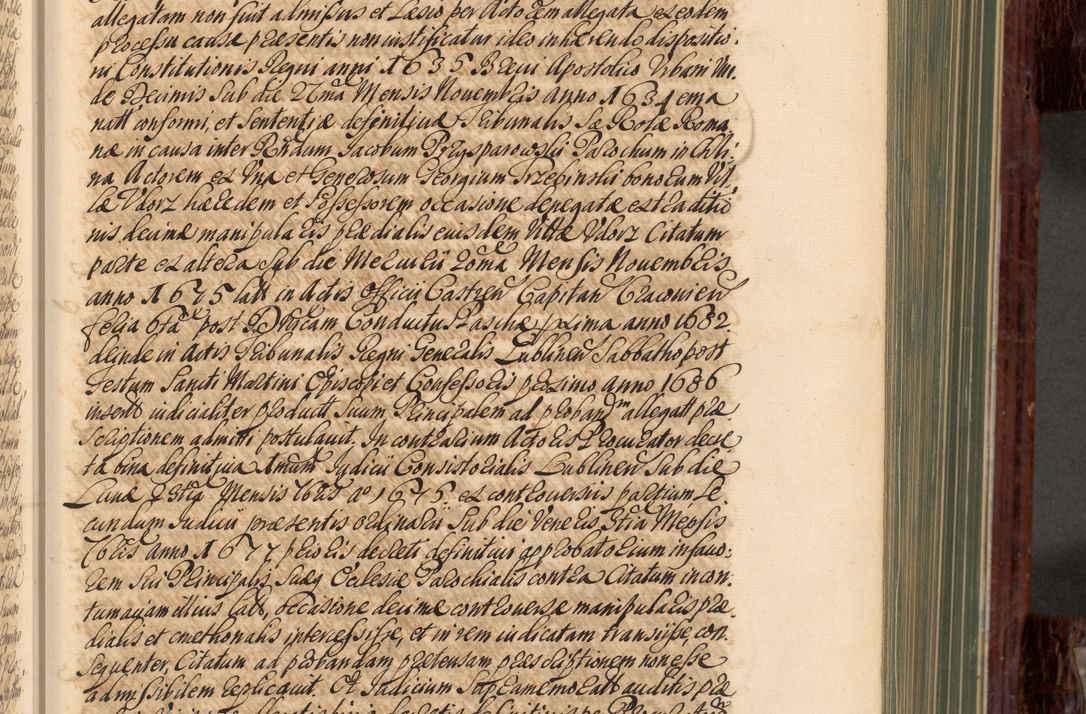 allegatam non fuit admissus et Laesio per Actorem allegata ex eodem
processu causae praesentis non iustificatur ideo inhaerendo dispositio:
ni Constitutionis Regni anni 1635 Brevi Apostolico Urbani VIII
de Decimis sub die 22ma Mensis Novembris anno 1634 ema
natt conformi, et sententiae definitivae Tribunalis Sae Rotae Roma
nae in causa inter Rndum Jacobum Przysparowski Parochum in Chli:
na Actorem ex Una et Generosum Georgium Trzebinski bonorum Vil
lae Udorz haeredem et Possessorem occasione denegatae extraditio
nis decimae manipularis praedialis eiusdem Villae Udorz Citatum
parte ex altera sub die Mercurii 20ma Mensis Novembris
anno 1675 latt in Actis Officii Castren Capitan Cracovien
feria 6ta post Dnicam Conductus Paschae proxima anno 1682
deinde in Actis Tribunalis Regni Generalis Lublinen Sabbatho post
Festum Sancti Martini Episcopi et Confessoris proximo anno 1686
insert iudicialiter productt suum Principalem ad proband allegatt prae
scriptionem admitti postulavit. In contrarium Actoris Procurator decre
ta bina definitiva Unum Judicii Consistorialis Lublinen sub die
Lunae Mensis 7bris ao 1675 ex controversiis partium se
cundum Judicii praesentis ordinarii sub die Veneris Mensis
7bris anno 1677 prioris decreti definitivi approbatorium in favo:
rem sui Principalis, suaeq Ecclesiae Parochialis contra Citatum in con:
tumatiam illius latt, occasione decimae controversae manipularis prae
dialis et cmethonalis intercessisse, et in rem iudicatam transiisse con
sequenter, Citatum ad probandam praetensam praescriptionem non esse
admissibilem replicavit. Et Judicium Supramemoratt auditis prae